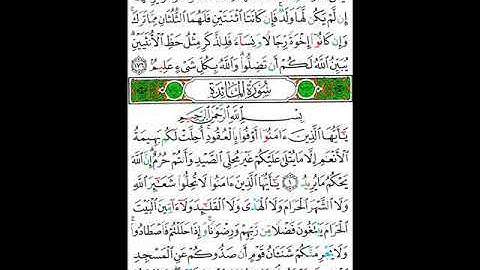 إِن لَّمْ يَكُن لَّهَا وَلَدٌ فَإِن كَانَتَا ٱثْنَتَيْنِ فَلَهُمَا ٱلثُّلُثَانِ مِمَّا تَرَكَ
وَإِن كَانُوٓا۟ إِخْوَةً رِّجَالًا وَنِسَآءً فَلِلذَّكَرِ مِثْلُ حَظِّ ٱلْأُنثَيَيْنِ
يُبَيِّنُ ٱللَّهُ لَكُمْ أَن تَضِلُّوا۟ وَٱللَّهُ بِكُلِّ شَىْءٍ عَلِيمٌۢ ١٧٦
سُورَةُ المَائِدَةِ
بِسْمِ ٱللَّهِ ٱلرَّحْمَٰنِ ٱلرَّحِيمِ
يَٰٓأَيُّهَا ٱلَّذِينَ ءَامَنُوٓا۟ أَوْفُوا۟ بِٱلْعُقُودِ أُحِلَّتْ لَكُم بَهِيمَةُ
ٱلْأَنْعَٰمِ إِلَّا مَا يُتْلَىٰ عَلَيْكُمْ غَيْرَ مُحِلِّى ٱلصَّيْدِ وَأَنتُمْ حُرُمٌ إِنَّ ٱللَّهَ
يَحْكُمُ مَا يُرِيدُ ١ يَٰٓأَيُّهَا ٱلَّذِينَ ءَامَنُوا۟ لَا تُحِلُّوا۟ شَعَٰٓئِرَ ٱللَّهِ
وَلَا ٱلشَّهْرَ ٱلْحَرَامَ وَلَا ٱلْهَدْىَ وَلَا ٱلْقَلَٰٓئِدَ وَلَآ ءَآمِّينَ ٱلْبَيْتَ
ٱلْحَرَامَ يَبْتَغُونَ فَضْلًا مِّن رَّبِّهِمْ وَرِضْوَٰنًا وَإِذَا حَلَلْتُمْ فَٱصْطَادُوا۟
وَلَا يَجْرِمَنَّكُمْ شَنَـَٔانُ قَوْمٍ أَن صَدُّوكُمْ عَنِ ٱلْمَسْجِدِ